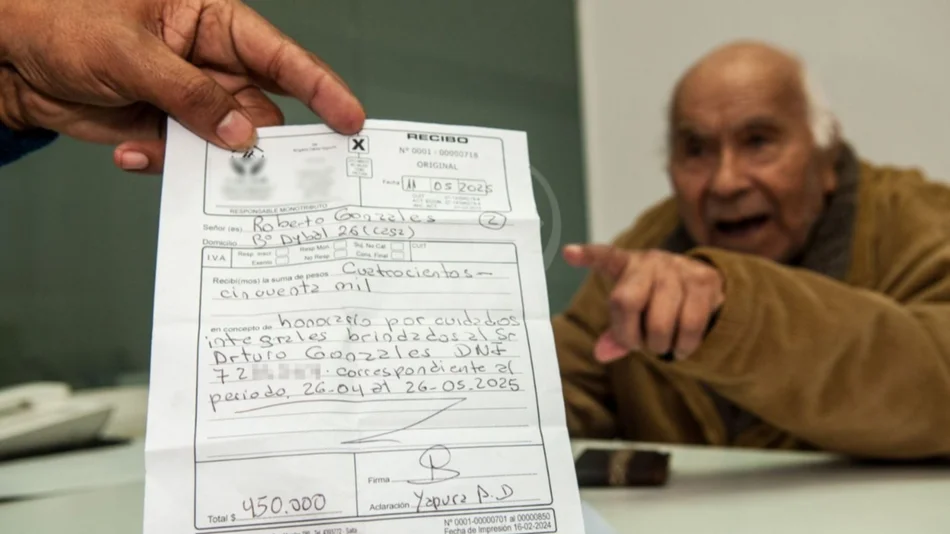 X
RECIBO
Nº 0001 - 00000718
ORIGINAL
Fecha 11 05 2025
RESPONSABLE MONOTRIBUTO
2
Señor (es) Roberto Gonzales
Domicilio Bº Dybal 26 (C252)
I.V.A. Resp. Inscr. Exento Resp Mon. No Resp. Suj. No Cat. Cons. Final CUIT
Recibí(mos) la suma de pesos Cuatrocientas-
cincuenta mil
en concepto de honorario por cuidados
integrales brindados al Sr
Arturo Gonzales DNI
72 correspondiente al
periodo, 26-04 al 26-05-2025
Firma
Total $ 450.000
Aclaración Yapura A.D
Nº 0001-00000701 al 00000850
Fecha de Impresión 16-02-2024